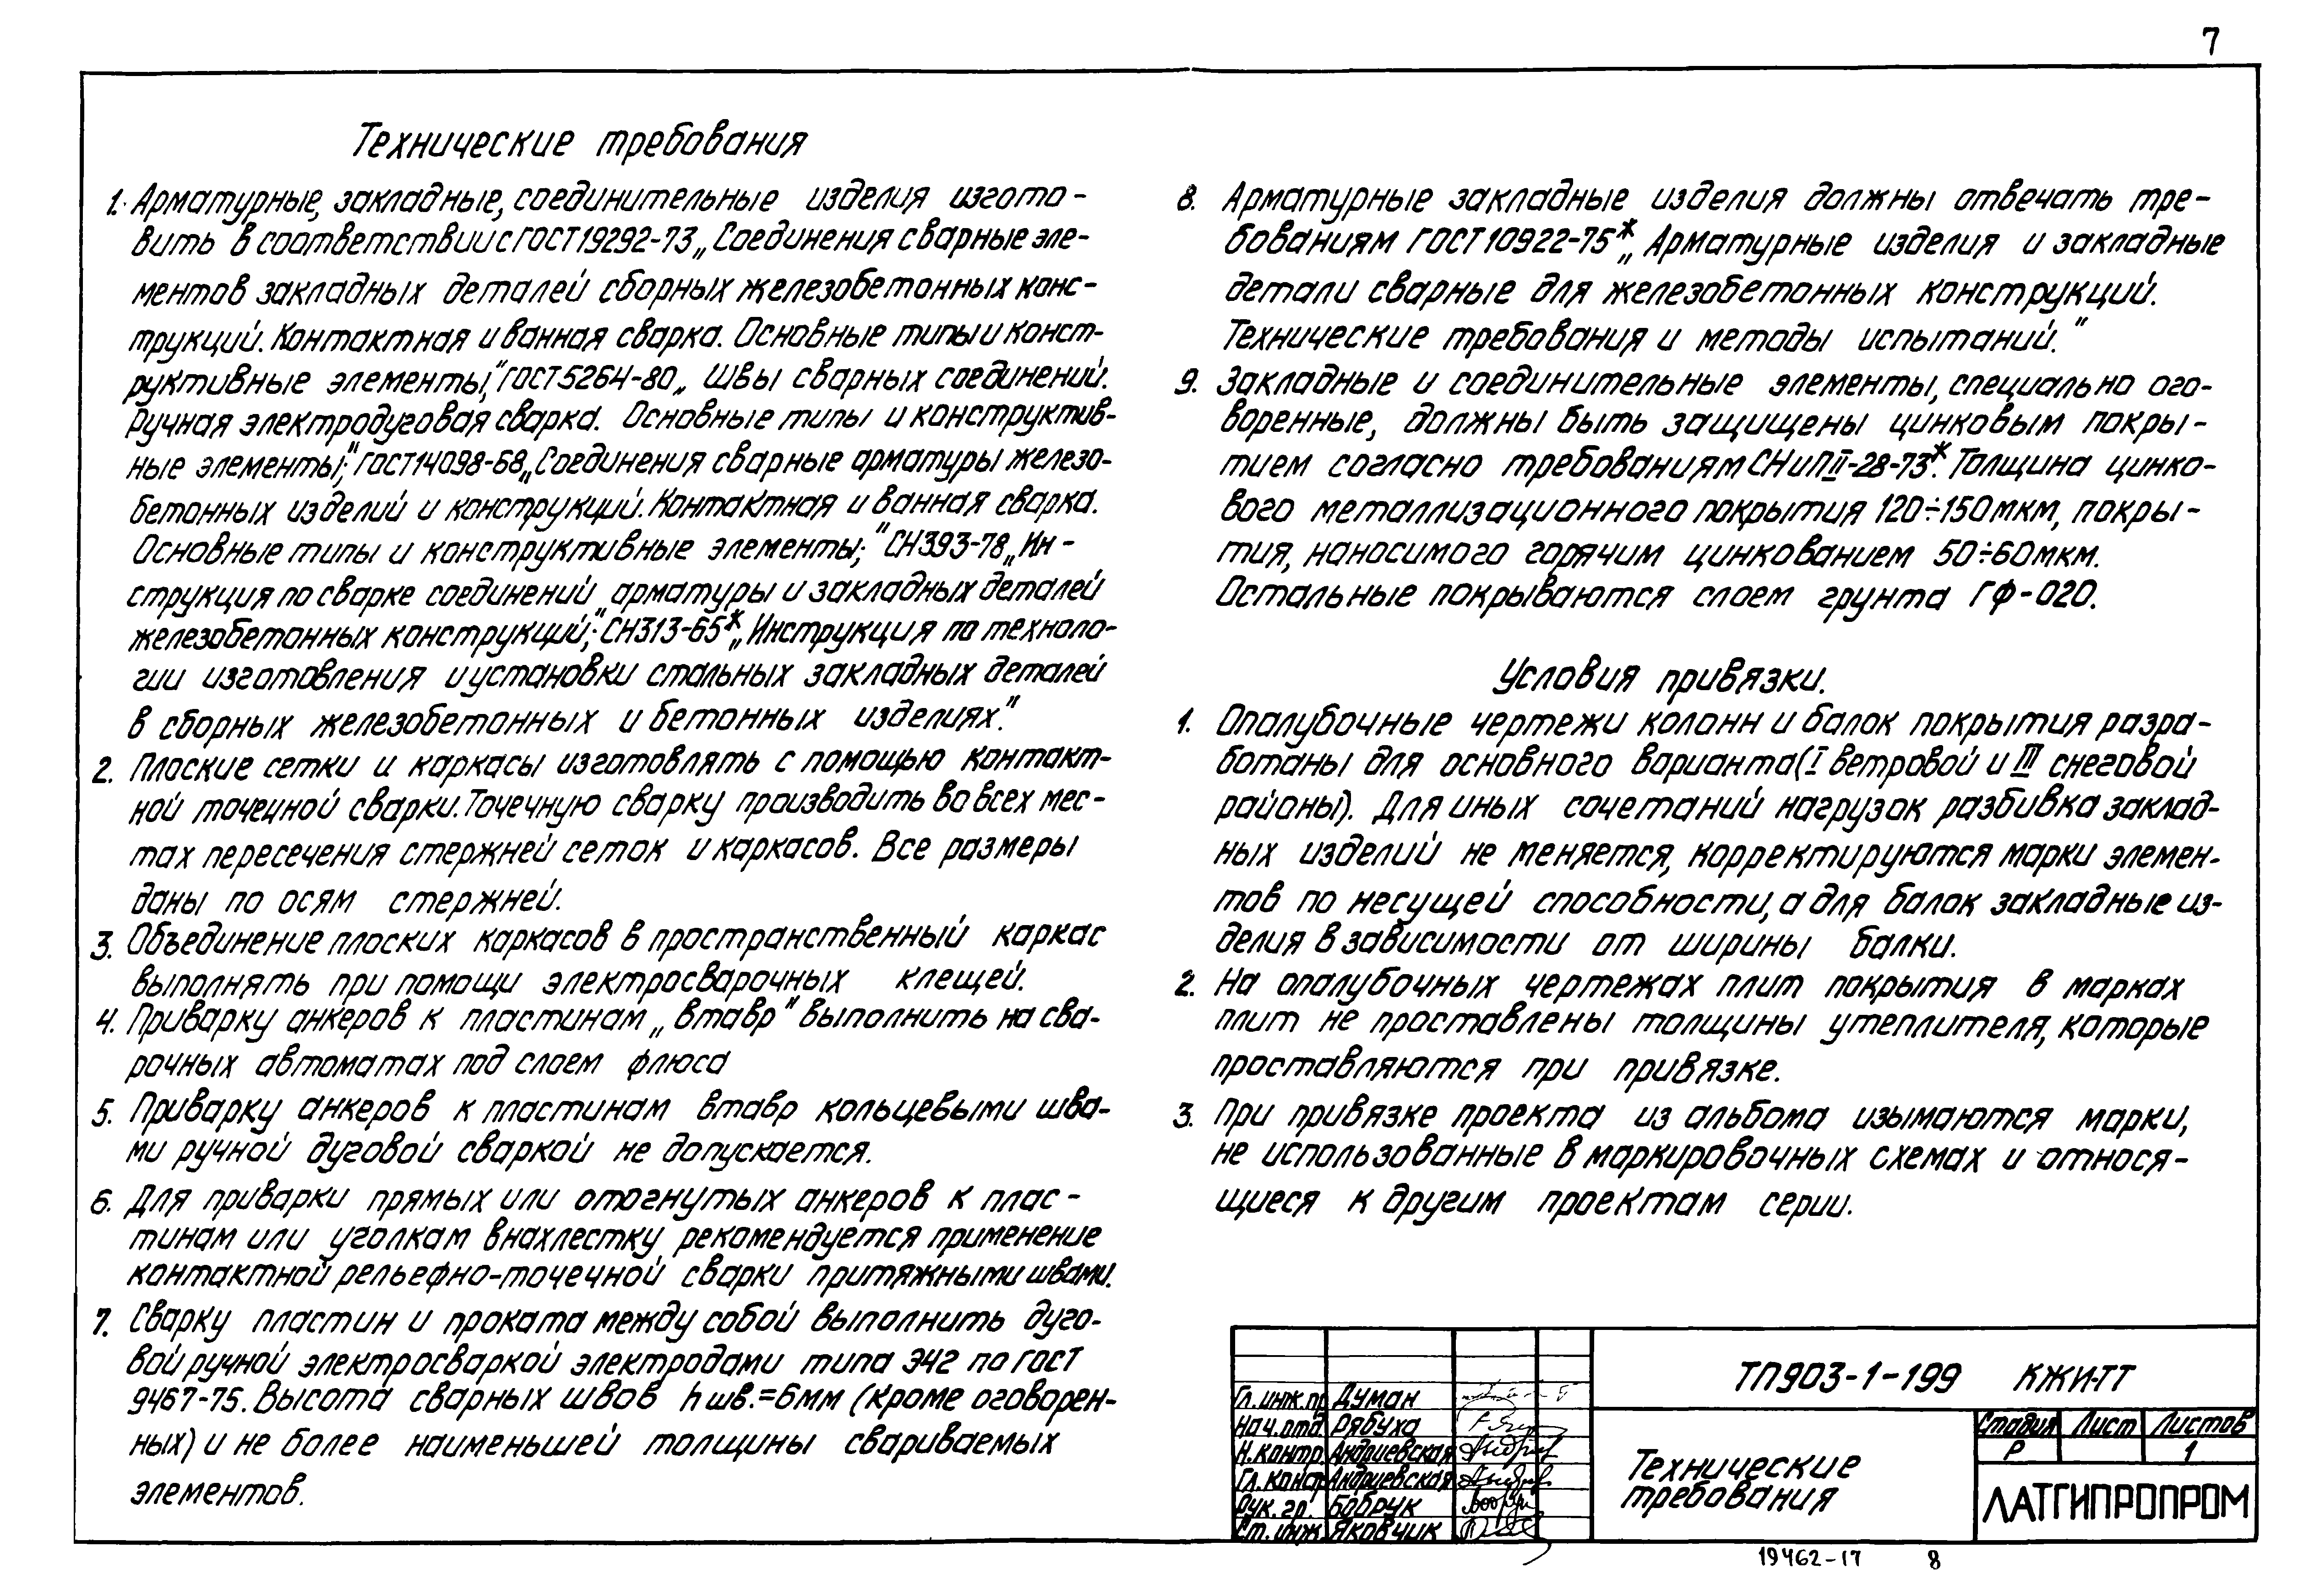 7
Технические требования
1. Арматурные, закладные, соединительные изделия изгото-
вить в соответствии с ГОСТ 19292-73 „Соединения сварные эле-
ментов закладных деталей сборных железобетонных конс-
трукций. Контактная и ванная сварка. Основные типы и конст-
руктивные элементы;" ГОСТ 5264-80 „ Швы сварных соединений.
Ручная электродуговая сварка. Основные типы и конструктив-
ные элементы;" ГОСТ 14098-68 „Соединения сварные арматуры железо-
бетонных изделий и конструкций. Контактная и ванная сварка.
Основные типы и конструктивные элементы;" СН 393-78 „Ин-
струкция по сварке соединений арматуры и закладных деталей
железобетонных конструкций;" СН313-65* „Инструкция по техноло-
гии изготовления и установки стальных закладных деталей
в сборных железобетонных и бетонных изделиях."
2. Плоские сетки и каркасы изготовлять с помощью контакт-
ной точечной сварки. Точечную сварку производить во всех мес-
тах пересечения стержней сеток и каркасов. Все размеры
даны по осям стержней.
3. Объединение плоских каркасов в пространственный каркас
выполнять при помощи электросварочных клещей.
4. Приварку анкеров к пластинам „втавр" выполнить на сва-
рочных автоматах под слоем флюса
5. Приварку анкеров к пластинам втавр кольцевыми шва-
ми ручной дуговой сваркой не допускается.
6. Для приварки прямых или отогнутых анкеров к плас-
тинам или уголкам внахлестку рекомендуется применение
контактной рельефно-точечной сварки притяжными швами.
7. Сварку пластин и проката между собой выполнить дуго-
вой ручной электросваркой электродами типа Э42 по ГОСТ
9467-75. Высота сварных швов h шв.=6мм (кроме оговорен-
ных) и не более наименьшей толщины свариваемых
элементов.
8. Арматурные закладные изделия должны отвечать тре-
бованиям ГОСТ 10922-75* „ Арматурные изделия и закладные
детали сварные для железобетонных конструкций.
Технические требования и методы испытаний."
9. Закладные и соединительные элементы, специально ого-
воренные, должны быть защищены цинковым покры-
тием согласно требованиям СНиП II-28-73*. Толщина цинко-
вого металлизационного покрытия 120÷150 мкм, покры-
тия, наносимого горячим цинкованием 50÷60 мкм.
Остальные покрываются слоем грунта ГФ-020.
Условия привязки.
1. Опалубочные чертежи колонн и балок покрытия разра-
ботаны для основного варианта (I ветровой и III снеговой
районы). Для иных сочетаний нагрузок разбивка заклад-
ных изделий не меняется, корректируются марки элемен-
тов по несущей способности, а для балок закладные из-
делия в зависимости от ширины балки.
2. На опалубочных чертежах плит покрытия в марках
плит не проставлены толщины утеплителя, которые
проставляются при привязке.
3. При привязке проекта из альбома изымаются марки,
не использованные в маркировочных схемах и относя-
щиеся к другим проектам серии.
ТП903-1-199 КЖИ-ТТ
Гл. инж. пр Думан
Нач. отд Рябуха
Н. контр Андриевская
Гл. констр Андриевская
Рук. гр. Бобрук
Ст. инж. Яковчик
Технические
требования
Стадия Лист Листов
Р 1
ЛАТГИПРОПРОМ
19462-17 8